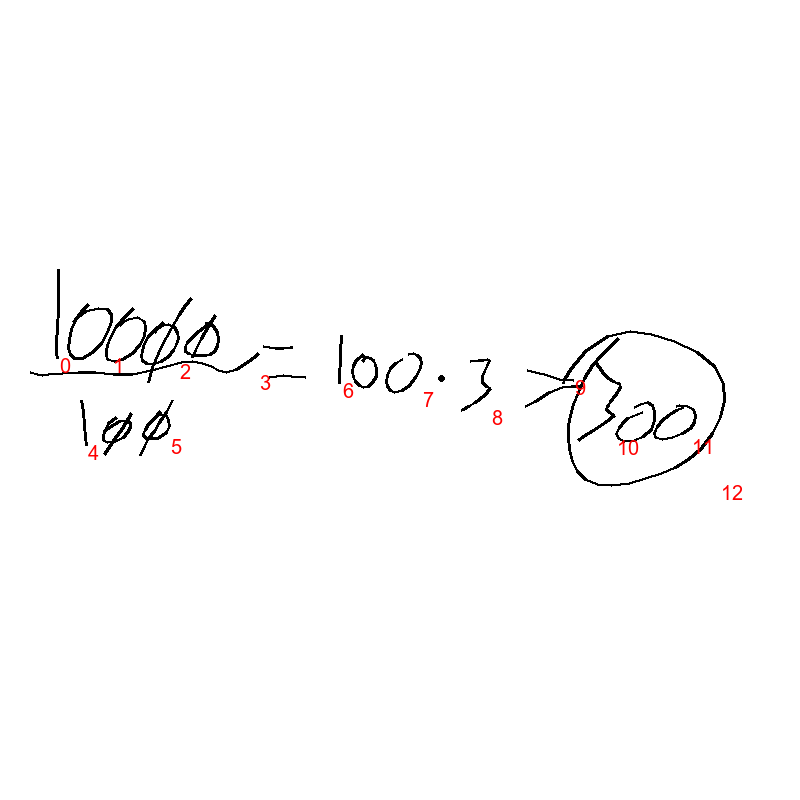 10000
100
= 100 · 3 = 300
0 1 2 3 4 5 6 7 8 9 10 11 12